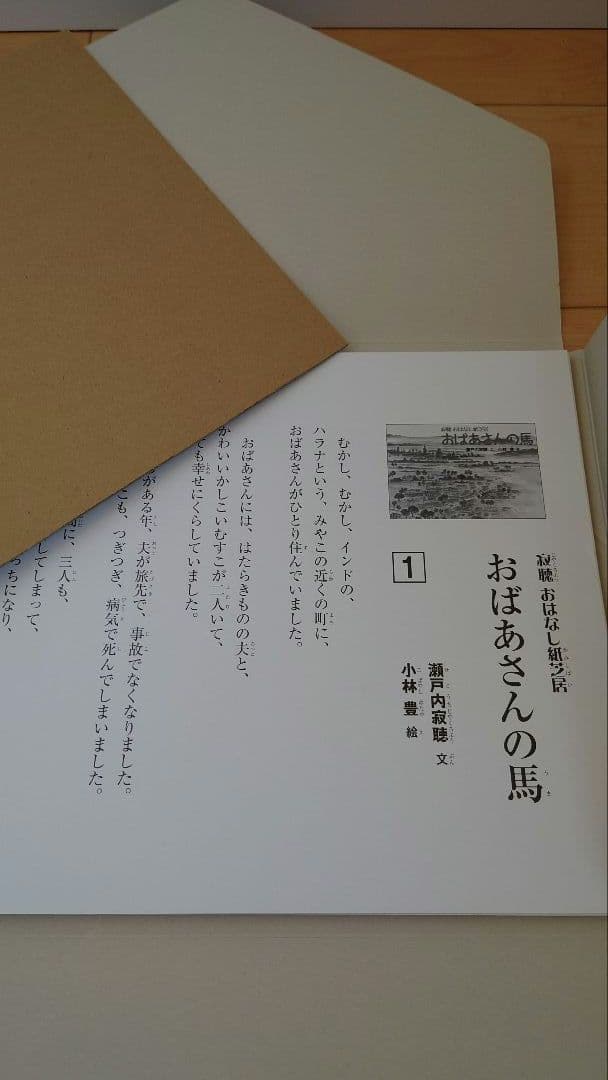 寂聴 おはなし紙芝居
おばあさんの馬
瀬戸内寂聴 文
小林 豊 絵
おばあさんの馬
1
むかし、むかし、インドの、
ハラナという、みやこの近くの町に、
おばあさんがひとり住んでいました。
おばあさんには、はたらきものの夫と、
かわいいかしこいむすこが二人いて、
ても幸せにくらしていました。
がある年、夫が旅先で、事故でなくなりました。
こも、つぎつぎ、病気で死んでしまいました。
に、三人も、
してしまって、
っちになり、